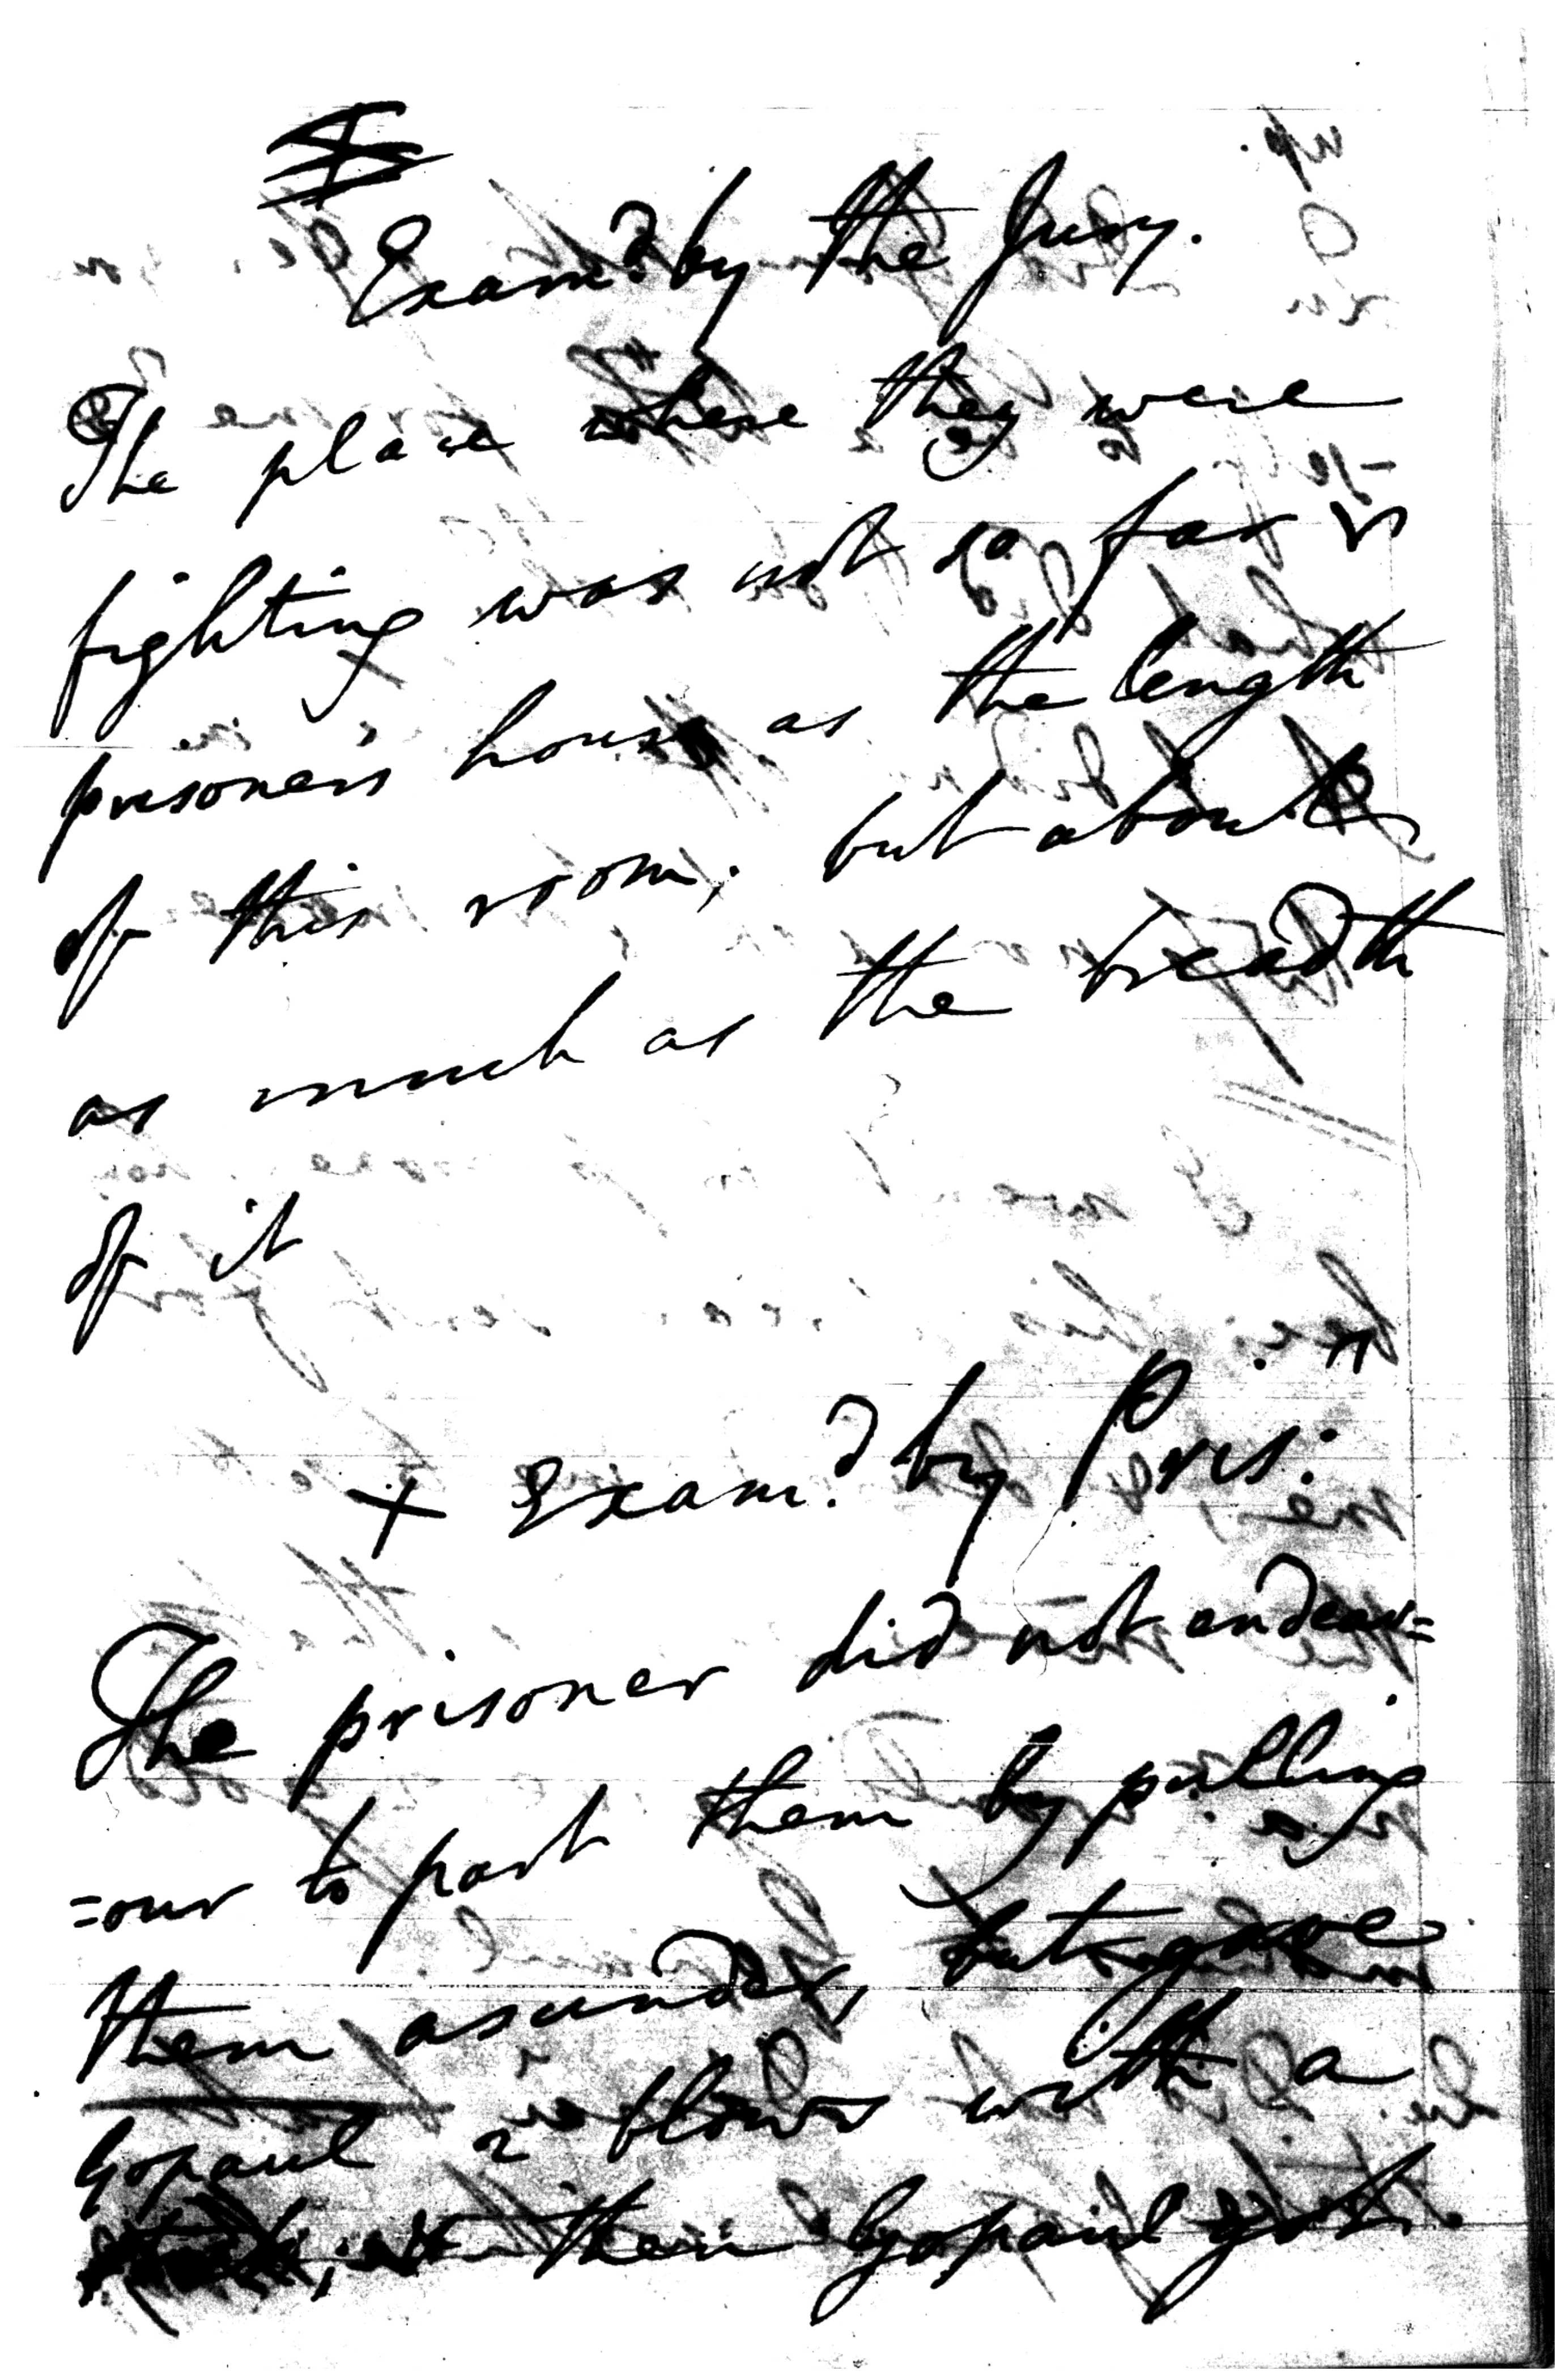 Exam.d by the Jury.
The place where they were
fighting was not so far fr
prisoners house as the length
of this room; but about
as much as the breadth
of it
+ Exam.d by Pris:r
The prisoner did not endeav=
=our to part them by pulling
them asunder, but gave
Gopaul 2 blows with a
then Gopaul got